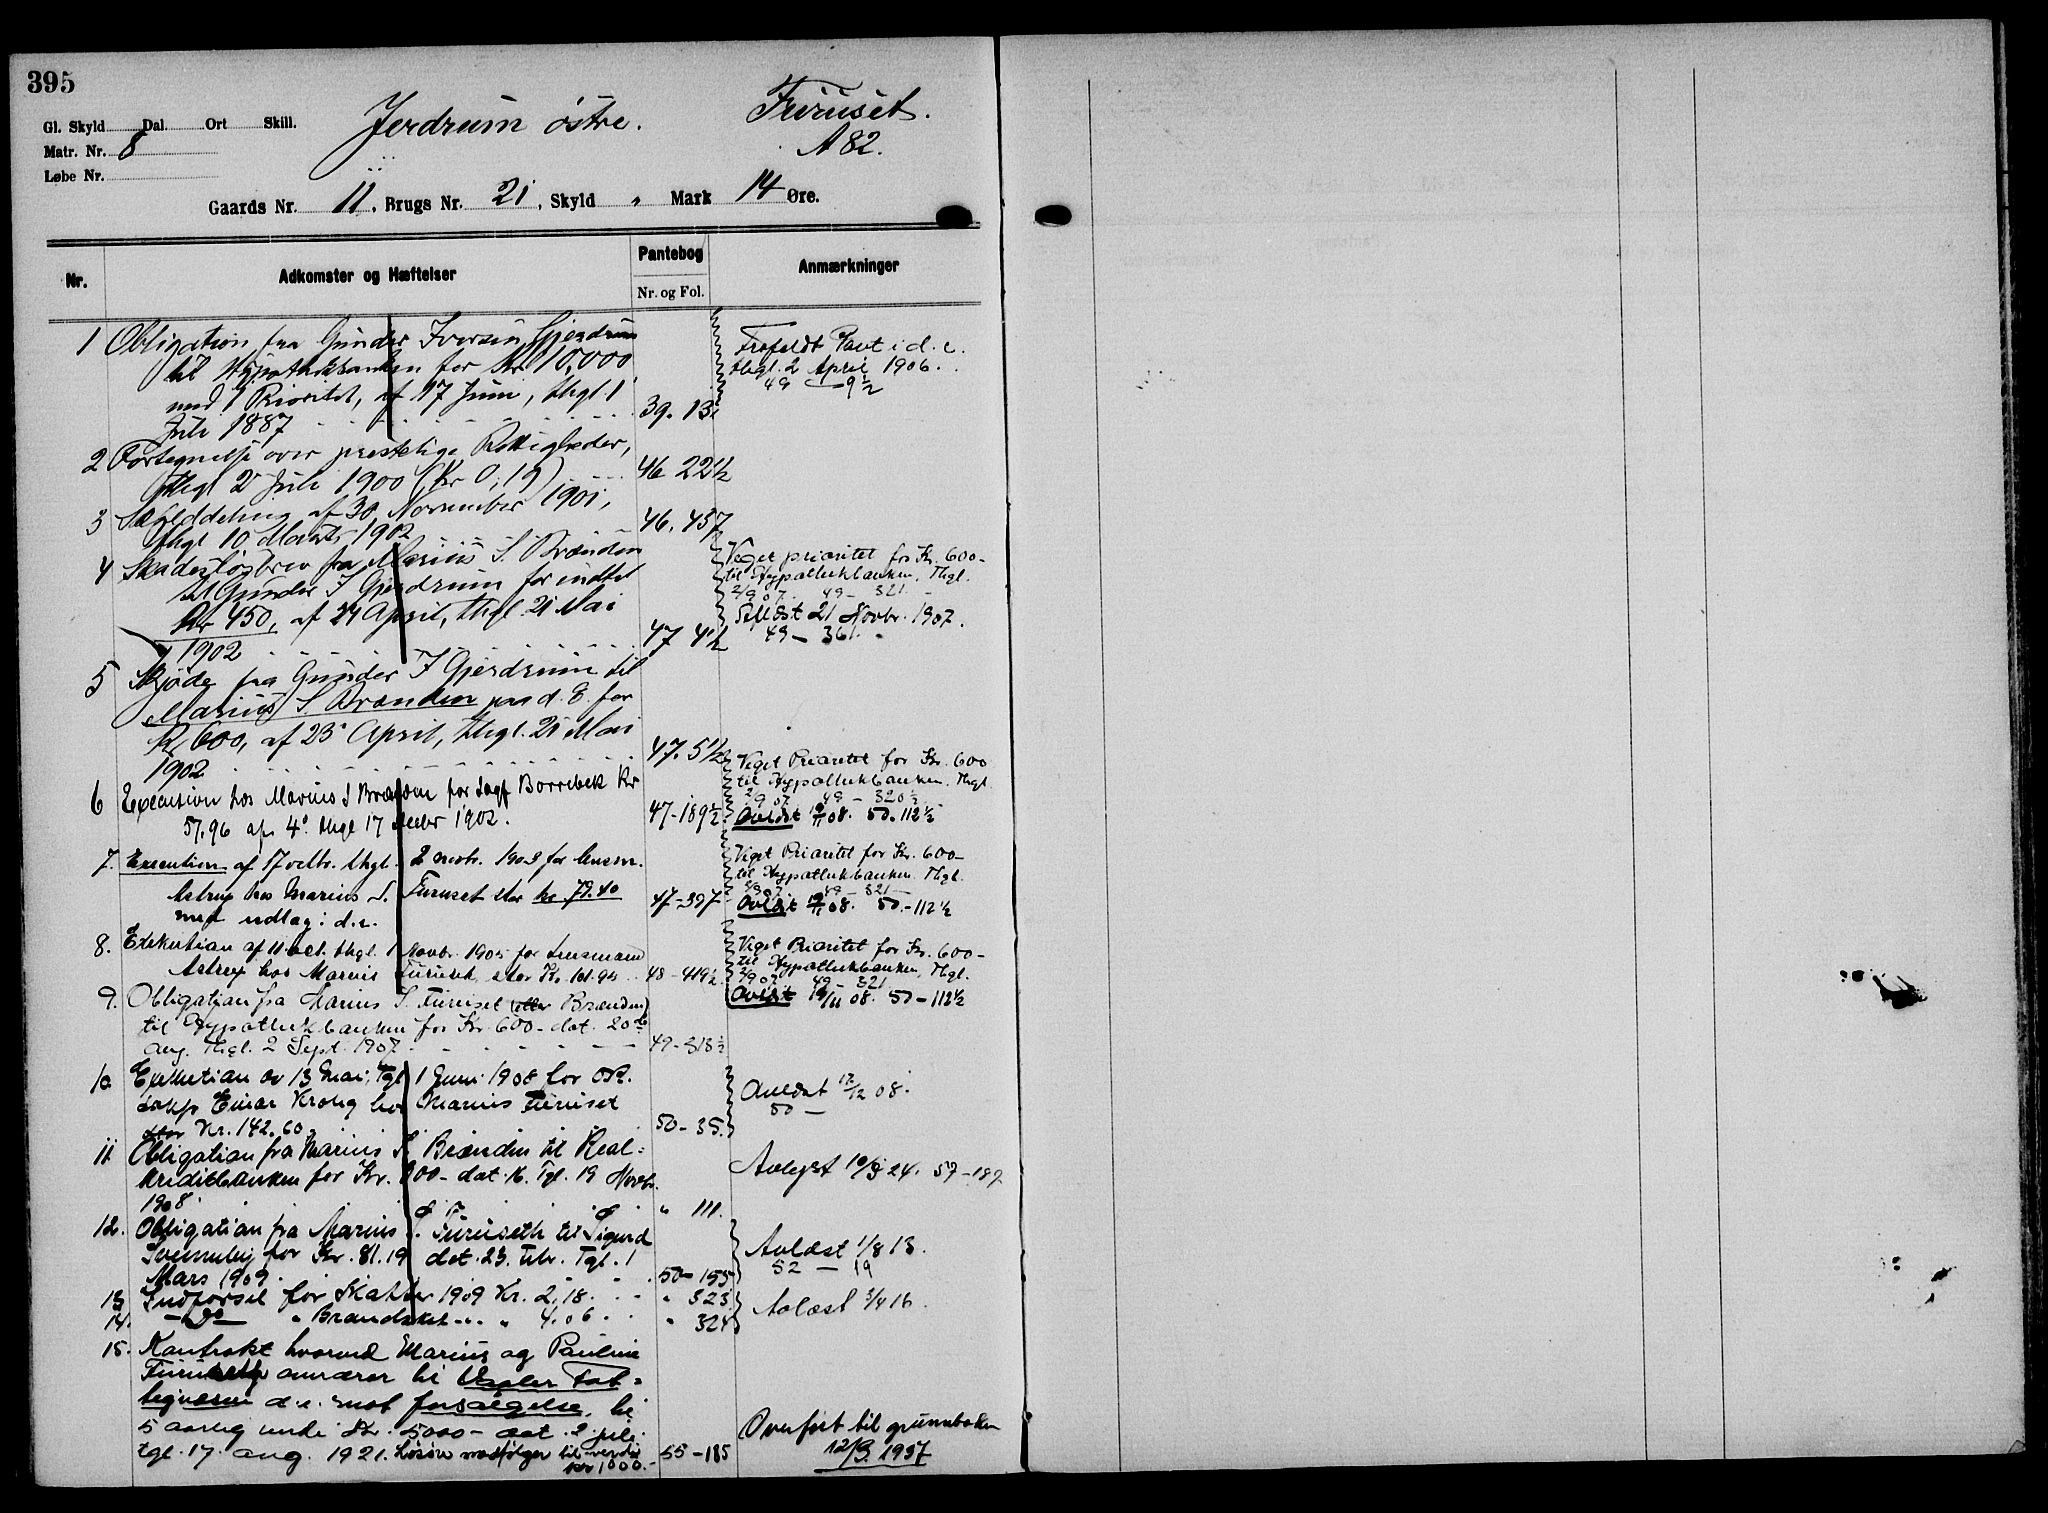 395
Gl. Skyld Dal. Ort Skill.
Matr. Nr. 8
Løbe Nr.
Jerdrum østre.
Furuset.
A 82.
Gaards Nr. 11, Brugs Nr. 21, Skyld " Mark 14 Øre.
Nr. Adkomster og Hæftelser Pantebog Anmærkninger
Nr. og Fol.
1 Obligation fra Gunder Iversen Gjerdrum
til Hypothekbanken for Kr 10,000
med 1 Prioritet, af 17 Juni, thgl. 1
Juli 1887 39. 13.
Frafaldt Pant i d. e.
thgl. 2 April 1906.
49 — 9½
2 Fortegnelse over prestelige Rettigheder,
thgl 2 Juli 1900 (Kr 0,19) 46 22½
3 Skylddeling af 30 November 1901,
thgl 10 Marts 1902 46. 457
4 Skadesløsbrev fra Marius S Brænden
til Gunder I Gjerdrum for indtil
Kr 450, af 24 April, thgl. 21 Mai
1902 47 4½
Veget prioritet for Kr. 600-
til Hypothekbanken. Thgl.
2/9 07. 49 - 321.
Slettet 21 Novbr. 1907.
49 - 361.
5 Skjøde fra Gunder I Gjerdrum til
Marius S. Brænden paa d. E. for
Kr 600, af 23 April, thgl. 21 Mai
1902 47. 5½
6 Execution hos Marius S Brænden for Sagf Borrebek Kr
57.96 af 4de thgl 17 decbr 1902. 47-189½
Veget Prioritet for Kr. 600
til Hypothekbanken. Thgl
2/9 07. 49 - 320½
Avløst 19/11 08. 50. 112½
7. Execution af 17 octbr. thgl. 2 novbr. 1903 for lensm.
Astrup hos Marius S. Furuset stor kr. 79.40
med udlæg i d. e. 47-397
Veget Prioritet for Kr. 600-
til Hypothekbanken. Thgl.
2/9 07. 49 - 321
Avløst 19/11 08. 50. - 112½
8. Exekution af 11 oct. thgl. 1 Novbr. 1905 for Lensmand
Astrup hos Marius Furuset stor Kr. 101.95 48 - 419½
Veget Prioritet for Kr. 600-
til Hypothekbanken, Thgl.
2/9 07. 49 - 321
Avløst 19/11 08. 50 - 112½
9. Obligation fra Marius S. Furuset (eller Brænden)
til Hypothekbanken for Kr. 600- dat. 20de
Aug. Thgl. 2 Sept. 1907 49 - 318½
10 Exekution av 13 Mai, Tgl 1 Juni 1908 for OR.
sakf Einar Krohg hos Marius Furuset
stor Kr. 142.60. 50 - 35.
Avløst 17/12 08.
50 -
11 Obligation fra Marius S. Brænden til Real=
kreditbanken for Kr. 800- dat. 16. Tgl. 19 Novbr.
1908. " 111.
Avlyst 10/3 24. 57 - 187
12. Obligation fra Marius S. Furuseth til Sigurd
for Kr. 81.19 dat. 23. febr. Tgl. 1
Mars 1909. 50 - 155
Avløst 1/8 13.
52 - 19
13 Indførsel for Skatter 1909 Kr. 2.18. " 323
14. - Do - " Brandskat " " 4.06 " 324
Avløst 3/4 16.
15. Kontrakt hvorved Marius og Pauline
Furuseth d. e. mot forsørgelse, til
5 aarlig verdi Kr. 5000- dat. 2 juli
tgl. 17. aug. 1921. Løsøre medfølger til verdi
Kr 1000.- 55 - 185
Overført til grunnboken
12/3. 1937